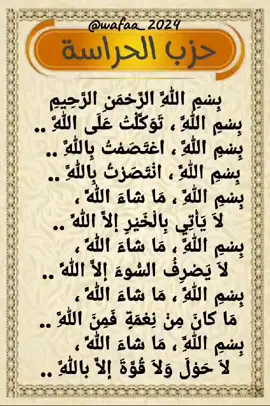 @wafaa_2024
حزب الحراسة
بِسْمِ اللَّهِ الرَّحْمَنِ الرَّحِيمِ
بِسْمِ اللَّهِ ، تَوَكَّلْتُ عَلَى اللَّهِ ..
بِسْمِ اللَّهِ ، اعْتَصَمْتُ بِاللَّهِ ..
بِسْمِ اللَّهِ ، انْتَصَرْتُ بِاللَّهِ ..
بِسْمِ اللَّهِ ، مَا شاءَ اللَّهُ ،
لاَ يَأتِي بِالْخَيْرِ إلاَّ اللَّهُ ..
بِسْمِ اللَّهِ ، مَا شَاءَ اللَّهُ ،
لاَ يَصْرِفُ السُّوءَ إلاَّ اللَّهُ ..
بِسْمِ اللَّهِ ، مَا شَاءَ اللَّهُ ،
مَا كانَ مِنْ نِعْمَةٍ فَمِنَ اللَّهِ ..
بِسْمِ اللَّهِ ، مَا شَاءَ اللَّهُ ،
لاَ حَوْلَ وَلاَ قُوَّةَ إلاَّ بِاللَّهِ ..